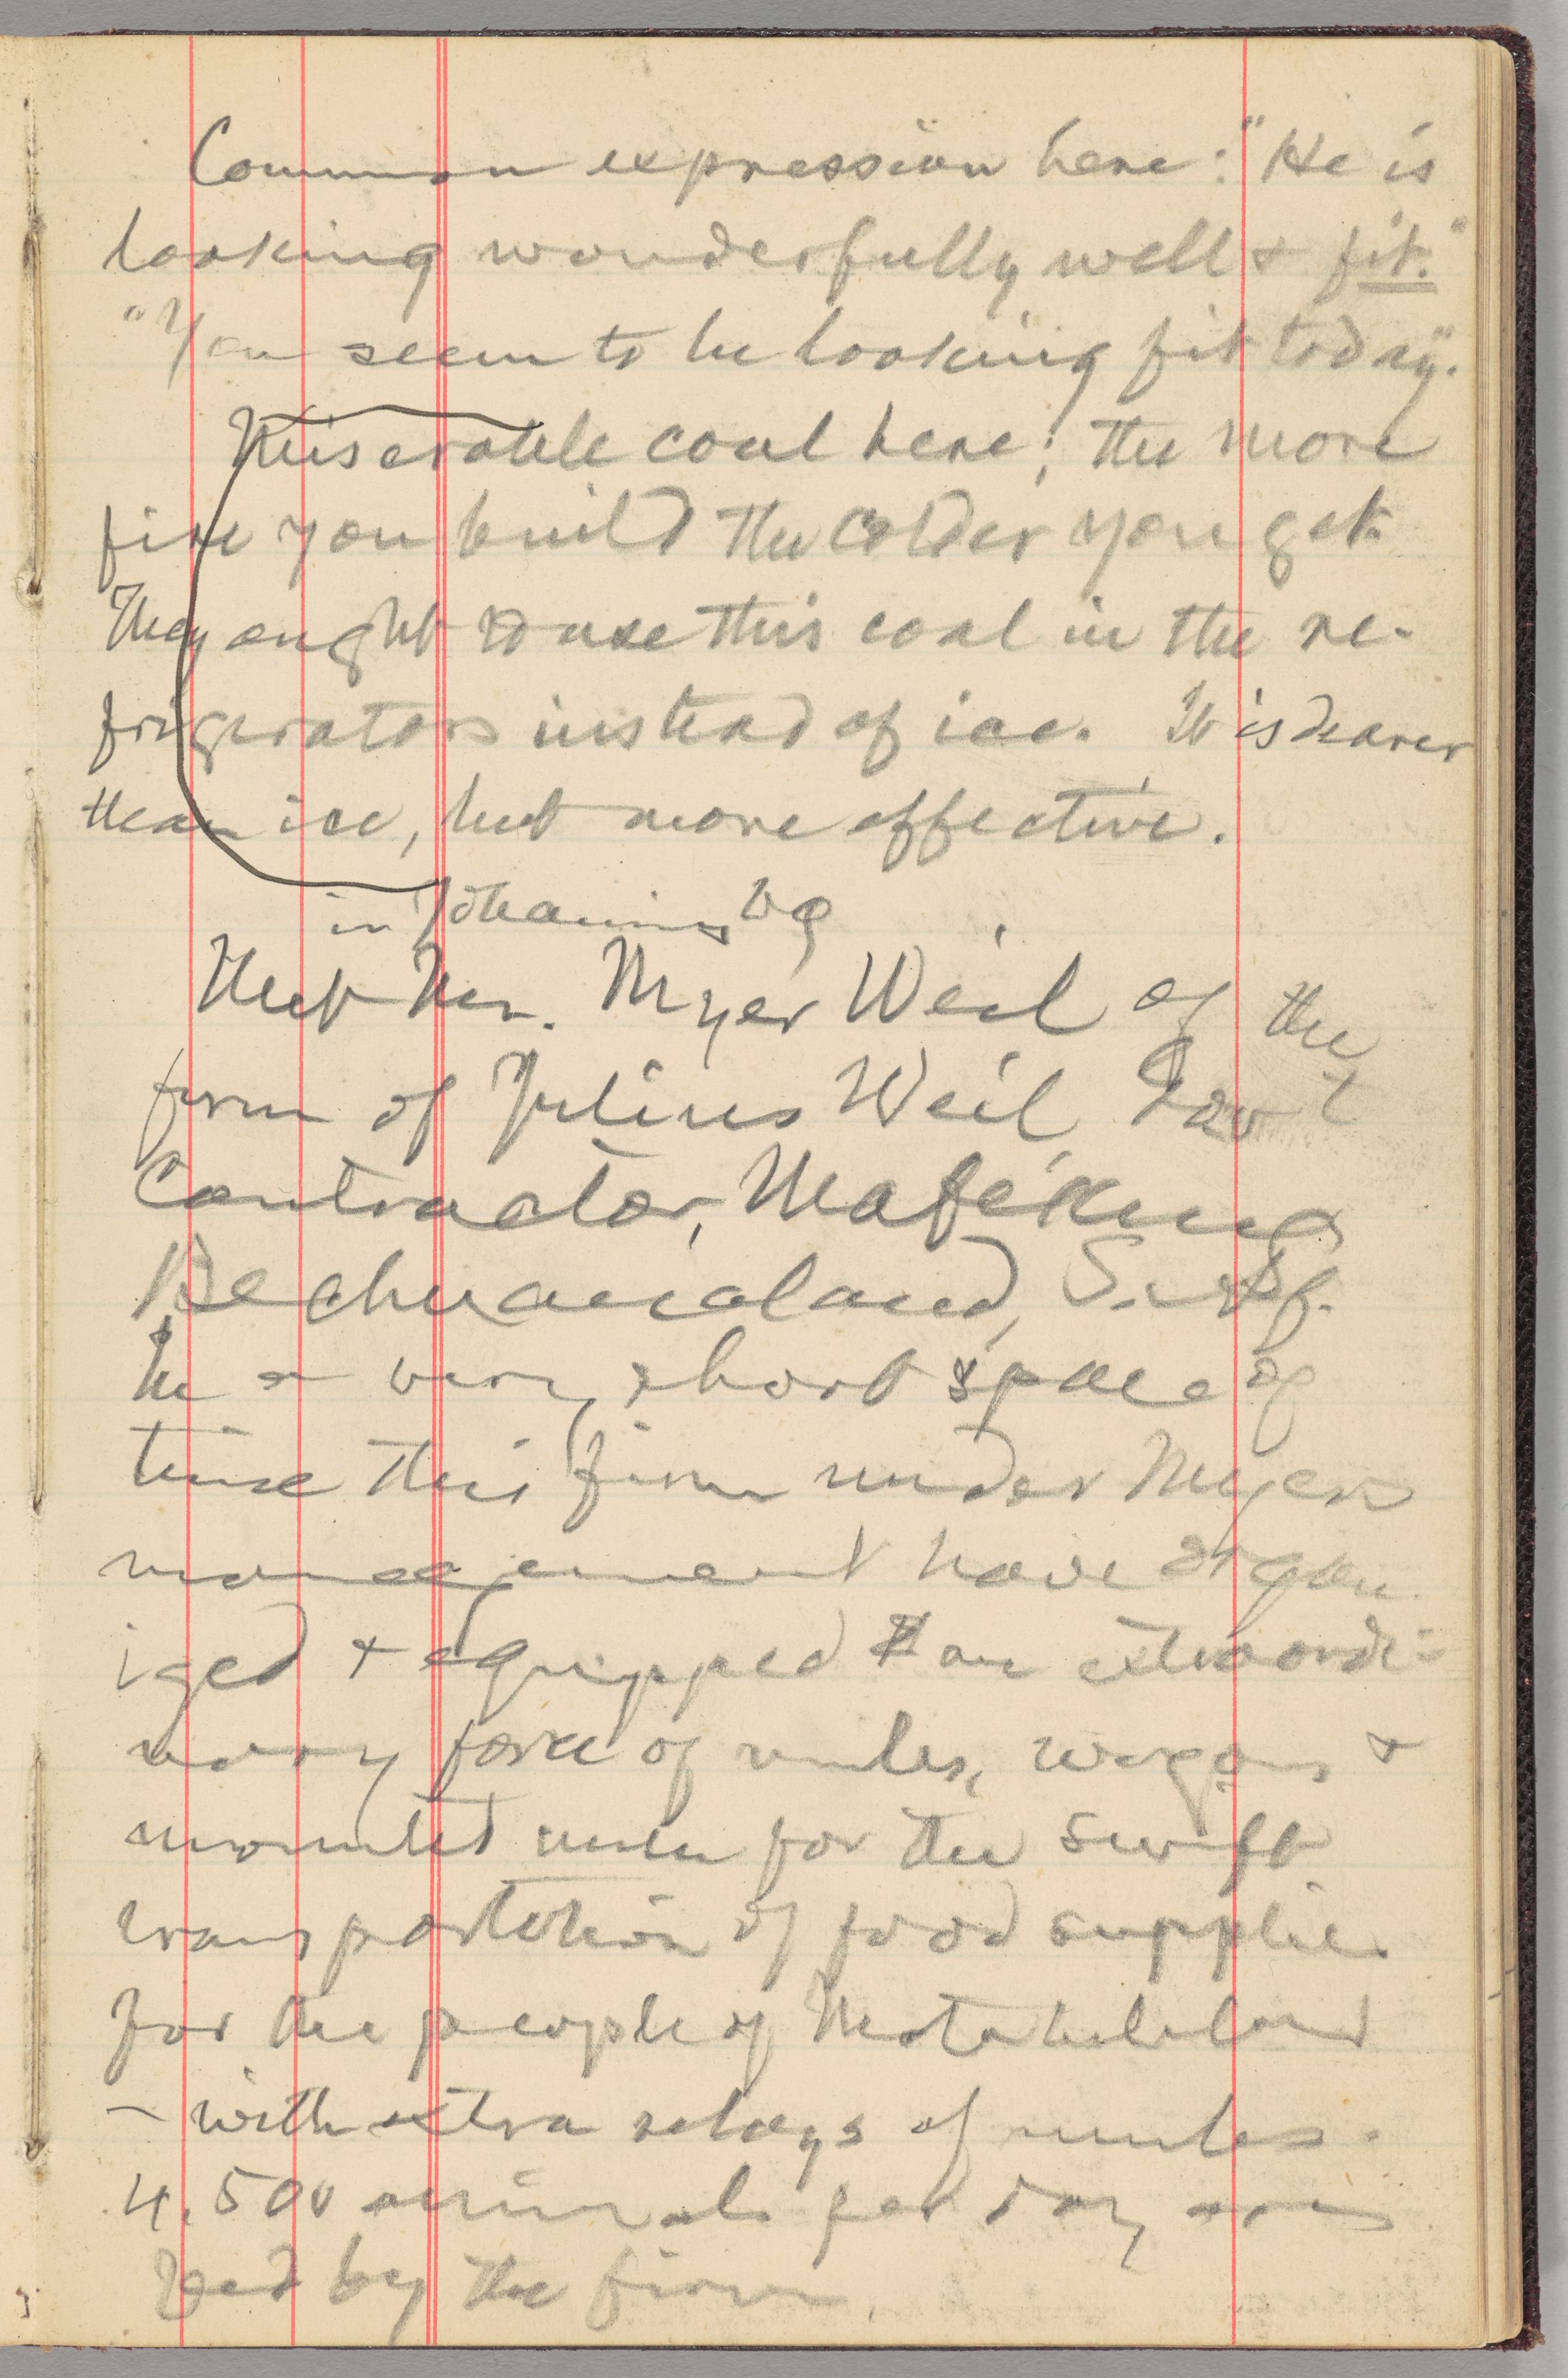 Common expression here: "He is
looking wonderfully well & fit."
"You seem to be looking fit today."
Miserable coal here; the more
fire you build the colder you get.
They ought to use this coal in the re-
frigerators instead of ice. It is dearer
than ice, but more effective.
in Johannisbg
Met Mr. Myer Weil of the
firm of Julius Weil, Gov't
Contractor, Mafeking
Bechuanaland, S. Af.
In a very short space of
time this firm under Myers
management have organ
ized & equipped an extraordi-
nary force of mules, wagons &
mounted men for the swift
transportation of food supplies
for the people of Matabeleland
– with extra relays of mules.
4,500 animals per day are
fed by the firm.